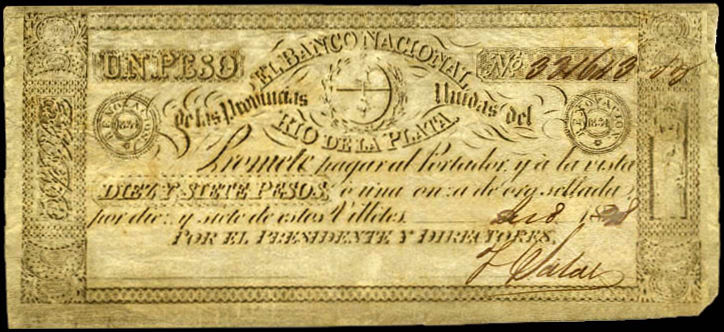 UN PESO
EL BANCO NACIONAL
No. 321613
de las Provincias
Unidas del
RIO DE LA PLATA
RENOVADO
RENOVADO
Promete pagar al Portador, y à la vista
DIEZ Y SIETE PESOS, ò una onza de oro sellada
por diez y siete de estos Villetes.
POR EL PRESIDENTE Y DIRECTORES.